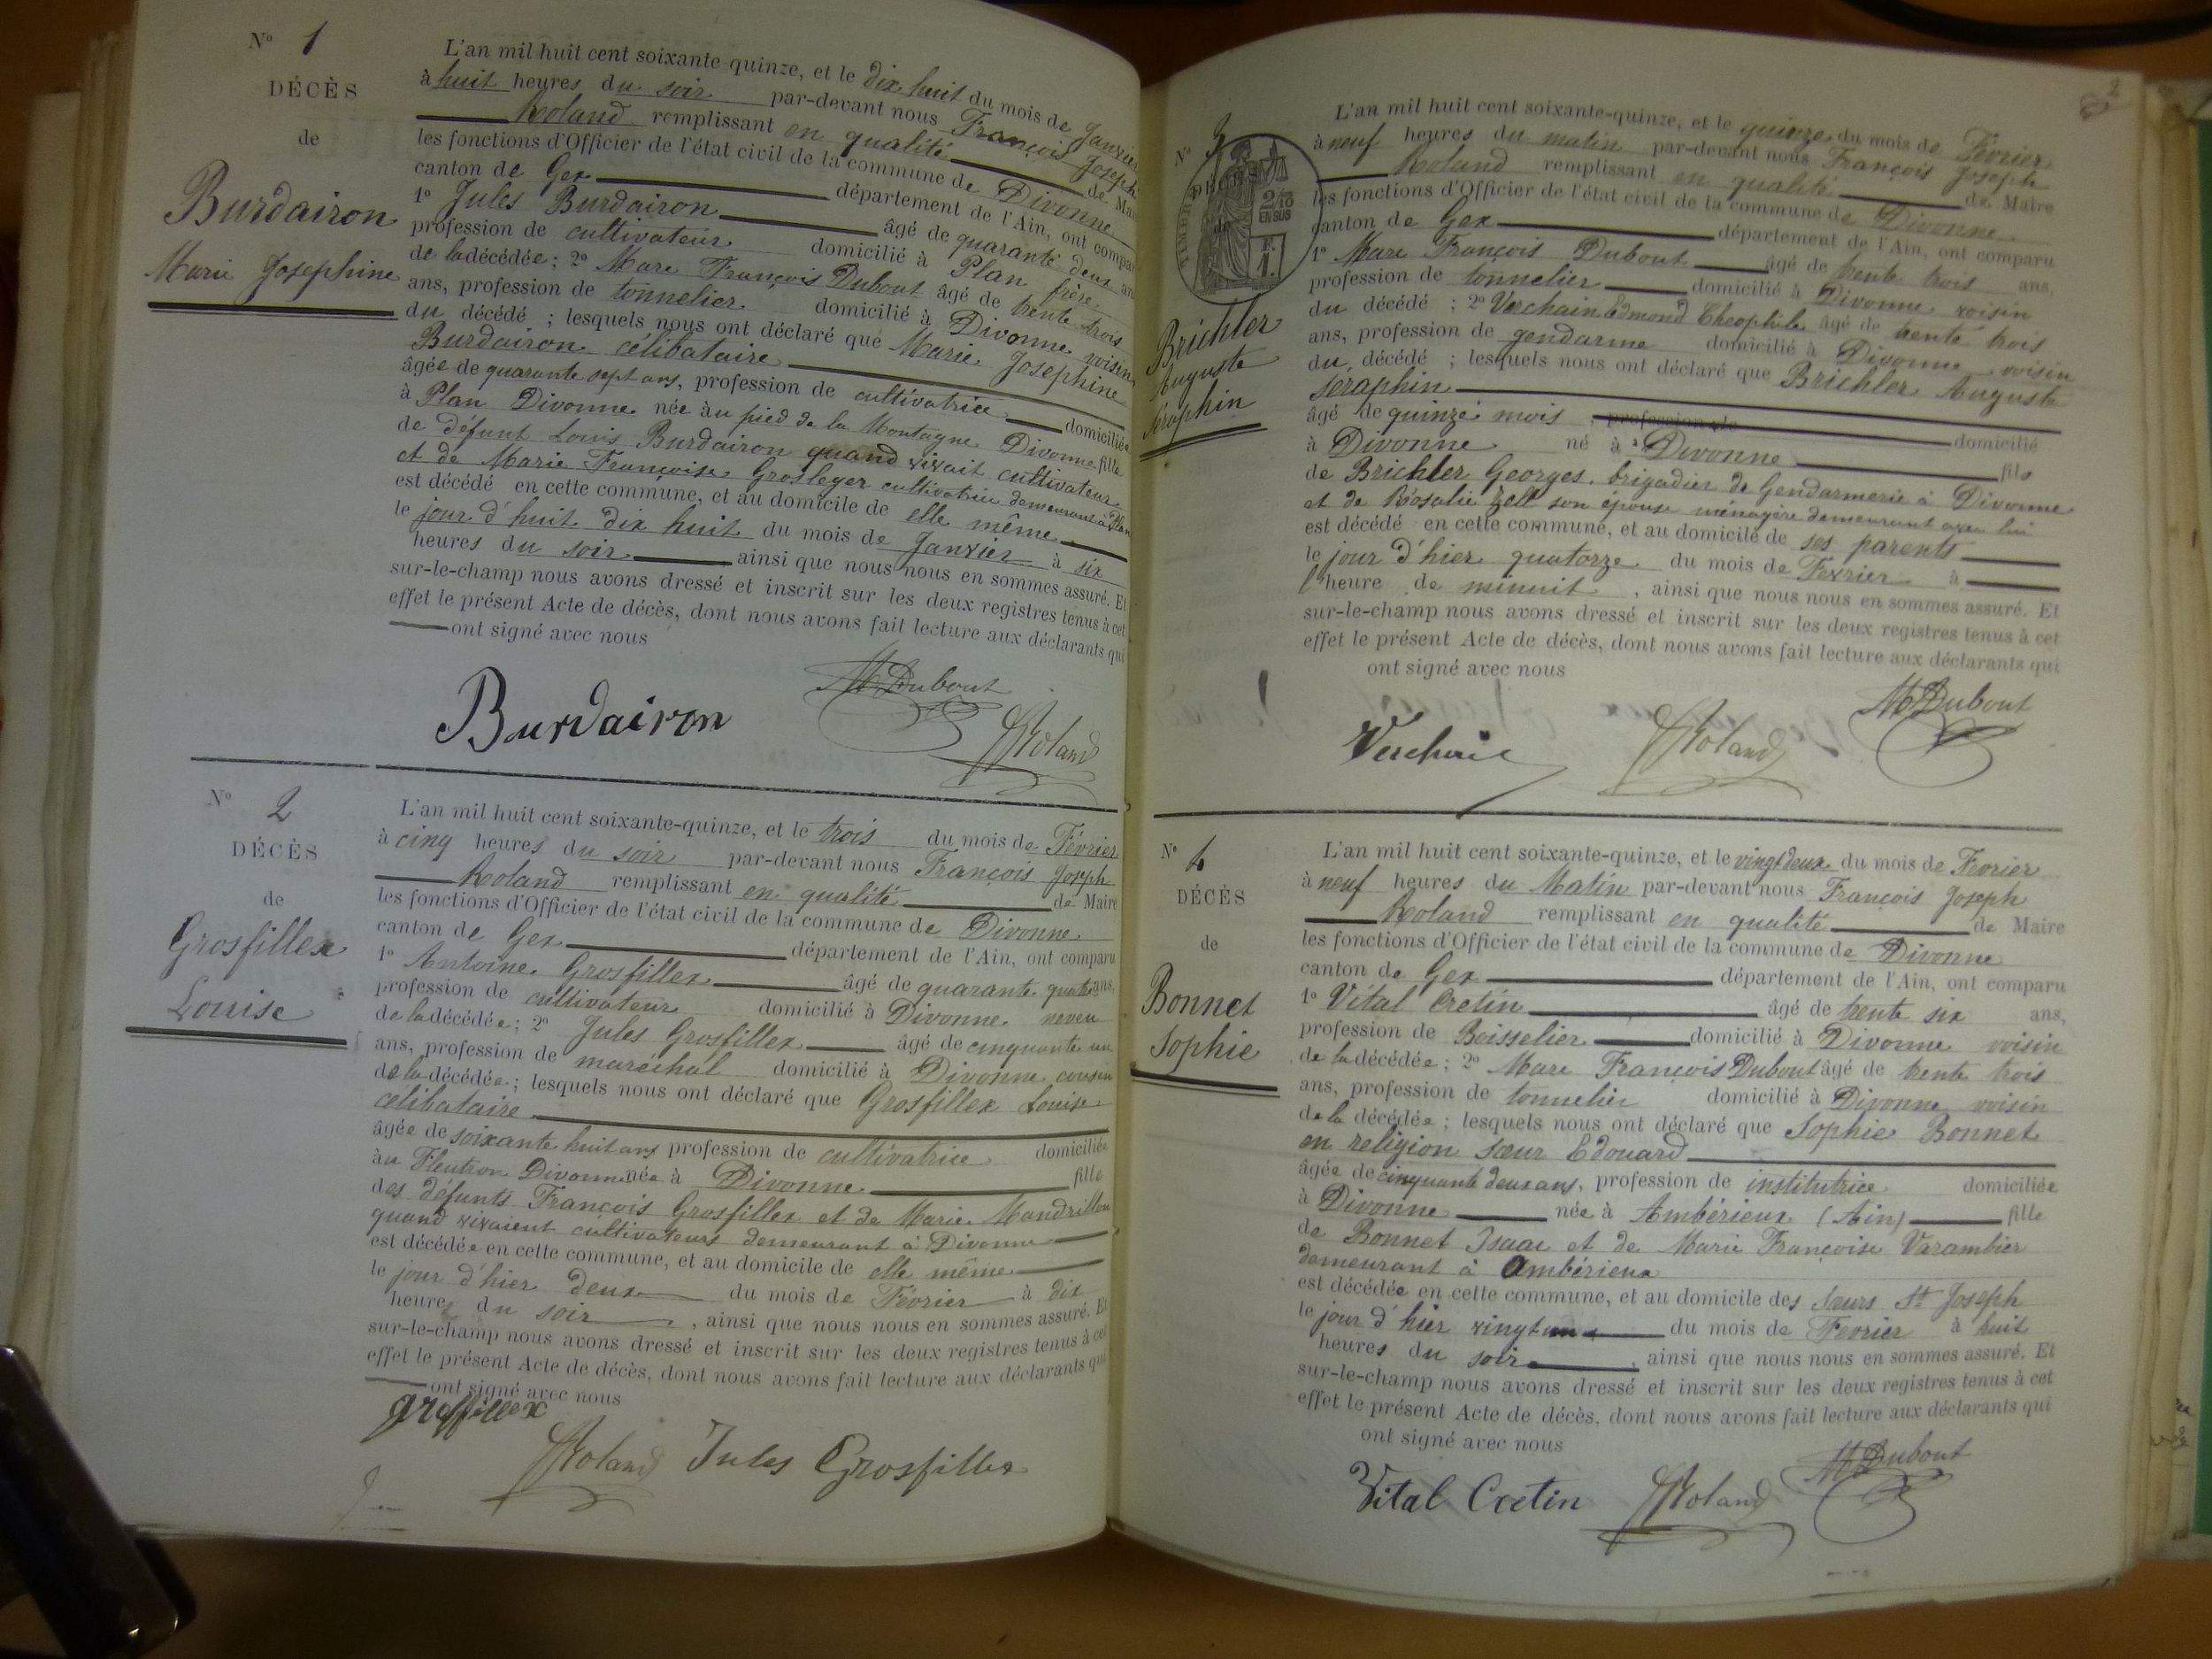 N° 1
DÉCÈS
de
Burdairon
Marie Josephine
L'an mil huit cent soixante-quinze, et le dix huit du mois de Janvier
à huit heures du soir par-devant nous François Joseph
Roland remplissant en qualité de Mai
les fonctions d'Officier de l'état civil de la commune de Divonne
canton de Gex département de l'Ain, ont compa
1° Jules Burdairon âgé de quarante deux an
profession de cultivateur domicilié à Plan frère
de la décédée ; 2° Marc François Dubout âgé de trente trois
ans, profession de tonnelier domicilié à Divonne voisin
du décédé ; lesquels nous ont déclaré que Marie Josephine
Burdairon célibataire
âgée de quarante sept ans, profession de cultivatrice domiciliée
à Plan Divonne née à au pied de la Montagne Divonne fille
de défunt Louis Burdairon quand vivait cultivateur
et de Marie Françoise Grosleyer cultivatrice demeurant à Plan
est décédé en cette commune, et au domicile de elle même
le jour d'huit dix huit du mois de Janvier à six
heures du soir ainsi que nous nous en sommes assuré. Et
sur-le-champ nous avons dressé et inscrit sur les deux registres tenus à cet
effet le présent Acte de décès, dont nous avons fait lecture aux déclarants qui
ont signé avec nous
M Dubout
Burdairon
JRoland
N° 2
DÉCÈS
de
Grosfillex
Louise
L'an mil huit cent soixante-quinze, et le trois du mois de Février
à cinq heures du soir par-devant nous François Joseph
Roland remplissant en qualité de Maire
les fonctions d'Officier de l'état civil de la commune de Divonne
canton de Gex département de l'Ain, ont comparu
1° Antoine Grosfillex âgé de quarante quatre ans,
profession de cultivateur domicilié à Divonne neveu
de la décédée ; 2° Jules Grosfillex âgé de cinquante un
ans, profession de maréchal domicilié à Divonne cousin
de la décédée ; lesquels nous ont déclaré que Grosfillex Louise
célibataire
âgée de soixante huit ans profession de cultivatrice domiciliée
au Fleutron Divonne née à Divonne fille
des défunts François Grosfillex et de Marie Mandrillon
quand vivaient cultivateurs demeurant à Divonne
est décédée en cette commune, et au domicile de elle même
le jour d'hier deux du mois de Février à dix
heures du soir, ainsi que nous nous en sommes assuré. Et
sur-le-champ nous avons dressé et inscrit sur les deux registres tenus à cet
effet le présent Acte de décès, dont nous avons fait lecture aux déclarants qui
ont signé avec nous
grosfillex
JRoland Jules Grosfillex
2
N° 3
DÉCÈS
de
2/10
EN SUS
F.
1.
Brichler
Auguste
Séraphin
L'an mil huit cent soixante-quinze, et le quinze du mois de Février
à neuf heures du matin par-devant nous François Joseph
Roland remplissant en qualité de Maire
les fonctions d'Officier de l'état civil de la commune de Divonne
canton de Gex département de l'Ain, ont comparu
1° Marc François Dubout âgé de trente trois ans,
profession de tonnelier domicilié à Divonne voisin
du décédé ; 2° Verchain Edmond Theophile âgé de trente trois
ans, profession de gendarme domicilié à Divonne voisin
du décédé ; lesquels nous ont déclaré que Brichler Auguste
seraphin
âgé de quinze mois, profession de domicilié
à Divonne né à Divonne fils
de Brichler Georges, brigadier de Gendarmerie à Divonne
et de Rosalie Zell son épouse ménagère demeurant avec lui
est décédé en cette commune, et au domicile de ses parents
le jour d'hier quatorze du mois de Fevrier à
l'heure de minuit, ainsi que nous nous en sommes assuré. Et
sur-le-champ nous avons dressé et inscrit sur les deux registres tenus à cet
effet le présent Acte de décès, dont nous avons fait lecture aux déclarants qui
ont signé avec nous
M Dubout
Verchain JRoland
N° 4
DÉCÈS
de
Bonnet
Sophie
L'an mil huit cent soixante-quinze, et le vingt deux du mois de Fevrier
à neuf heures du Matin par-devant nous François Joseph
Roland remplissant en qualité de Maire
les fonctions d'Officier de l'état civil de la commune de Divonne
canton de Gex département de l'Ain, ont comparu
1° Vital Cretin âgé de trente six ans,
profession de Boisselier domicilié à Divonne voisin
de la décédée ; 2° Marc François Dubout âgé de trente trois
ans, profession de tonnelier domicilié à Divonne voisin
de la décédée ; lesquels nous ont déclaré que Sophie Bonnet
en religion sœur Edouard
âgée de cinquante deux ans, profession de institutrice domiciliée
à Divonne née à Ambérieux (Ain) fille
de Bonnet Isaac et de Marie Françoise Varambier
demeurant à Ambérieux
est décédée en cette commune, et au domicile des sœurs St Joseph
le jour d'hier vingt un du mois de Fevrier à huit
heures du soir, ainsi que nous nous en sommes assuré. Et
sur-le-champ nous avons dressé et inscrit sur les deux registres tenus à cet
effet le présent Acte de décès, dont nous avons fait lecture aux déclarants qui
ont signé avec nous
M Dubout
Vital Cretin JRoland